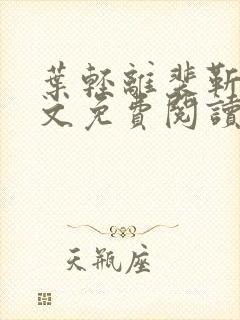 葉輕離裴靳
文免費閱讀
天瓶座